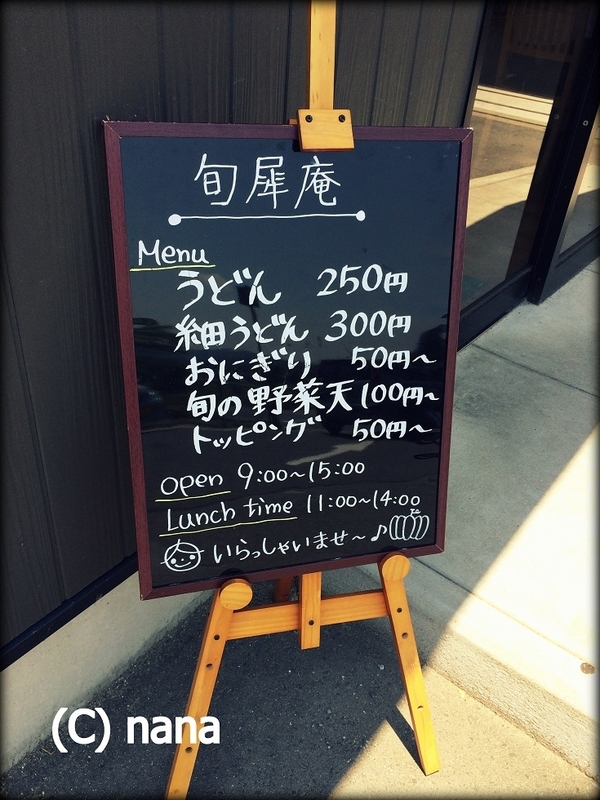 旬犀庵
Menu
うどん 250円
細うどん 300円
おにぎり 50円~
旬の野菜天 100円~
トッピング 50円~
open 9:00~15:00
Lunch time 11:00~14:00
いらっしゃいませ~♪
(C) nana